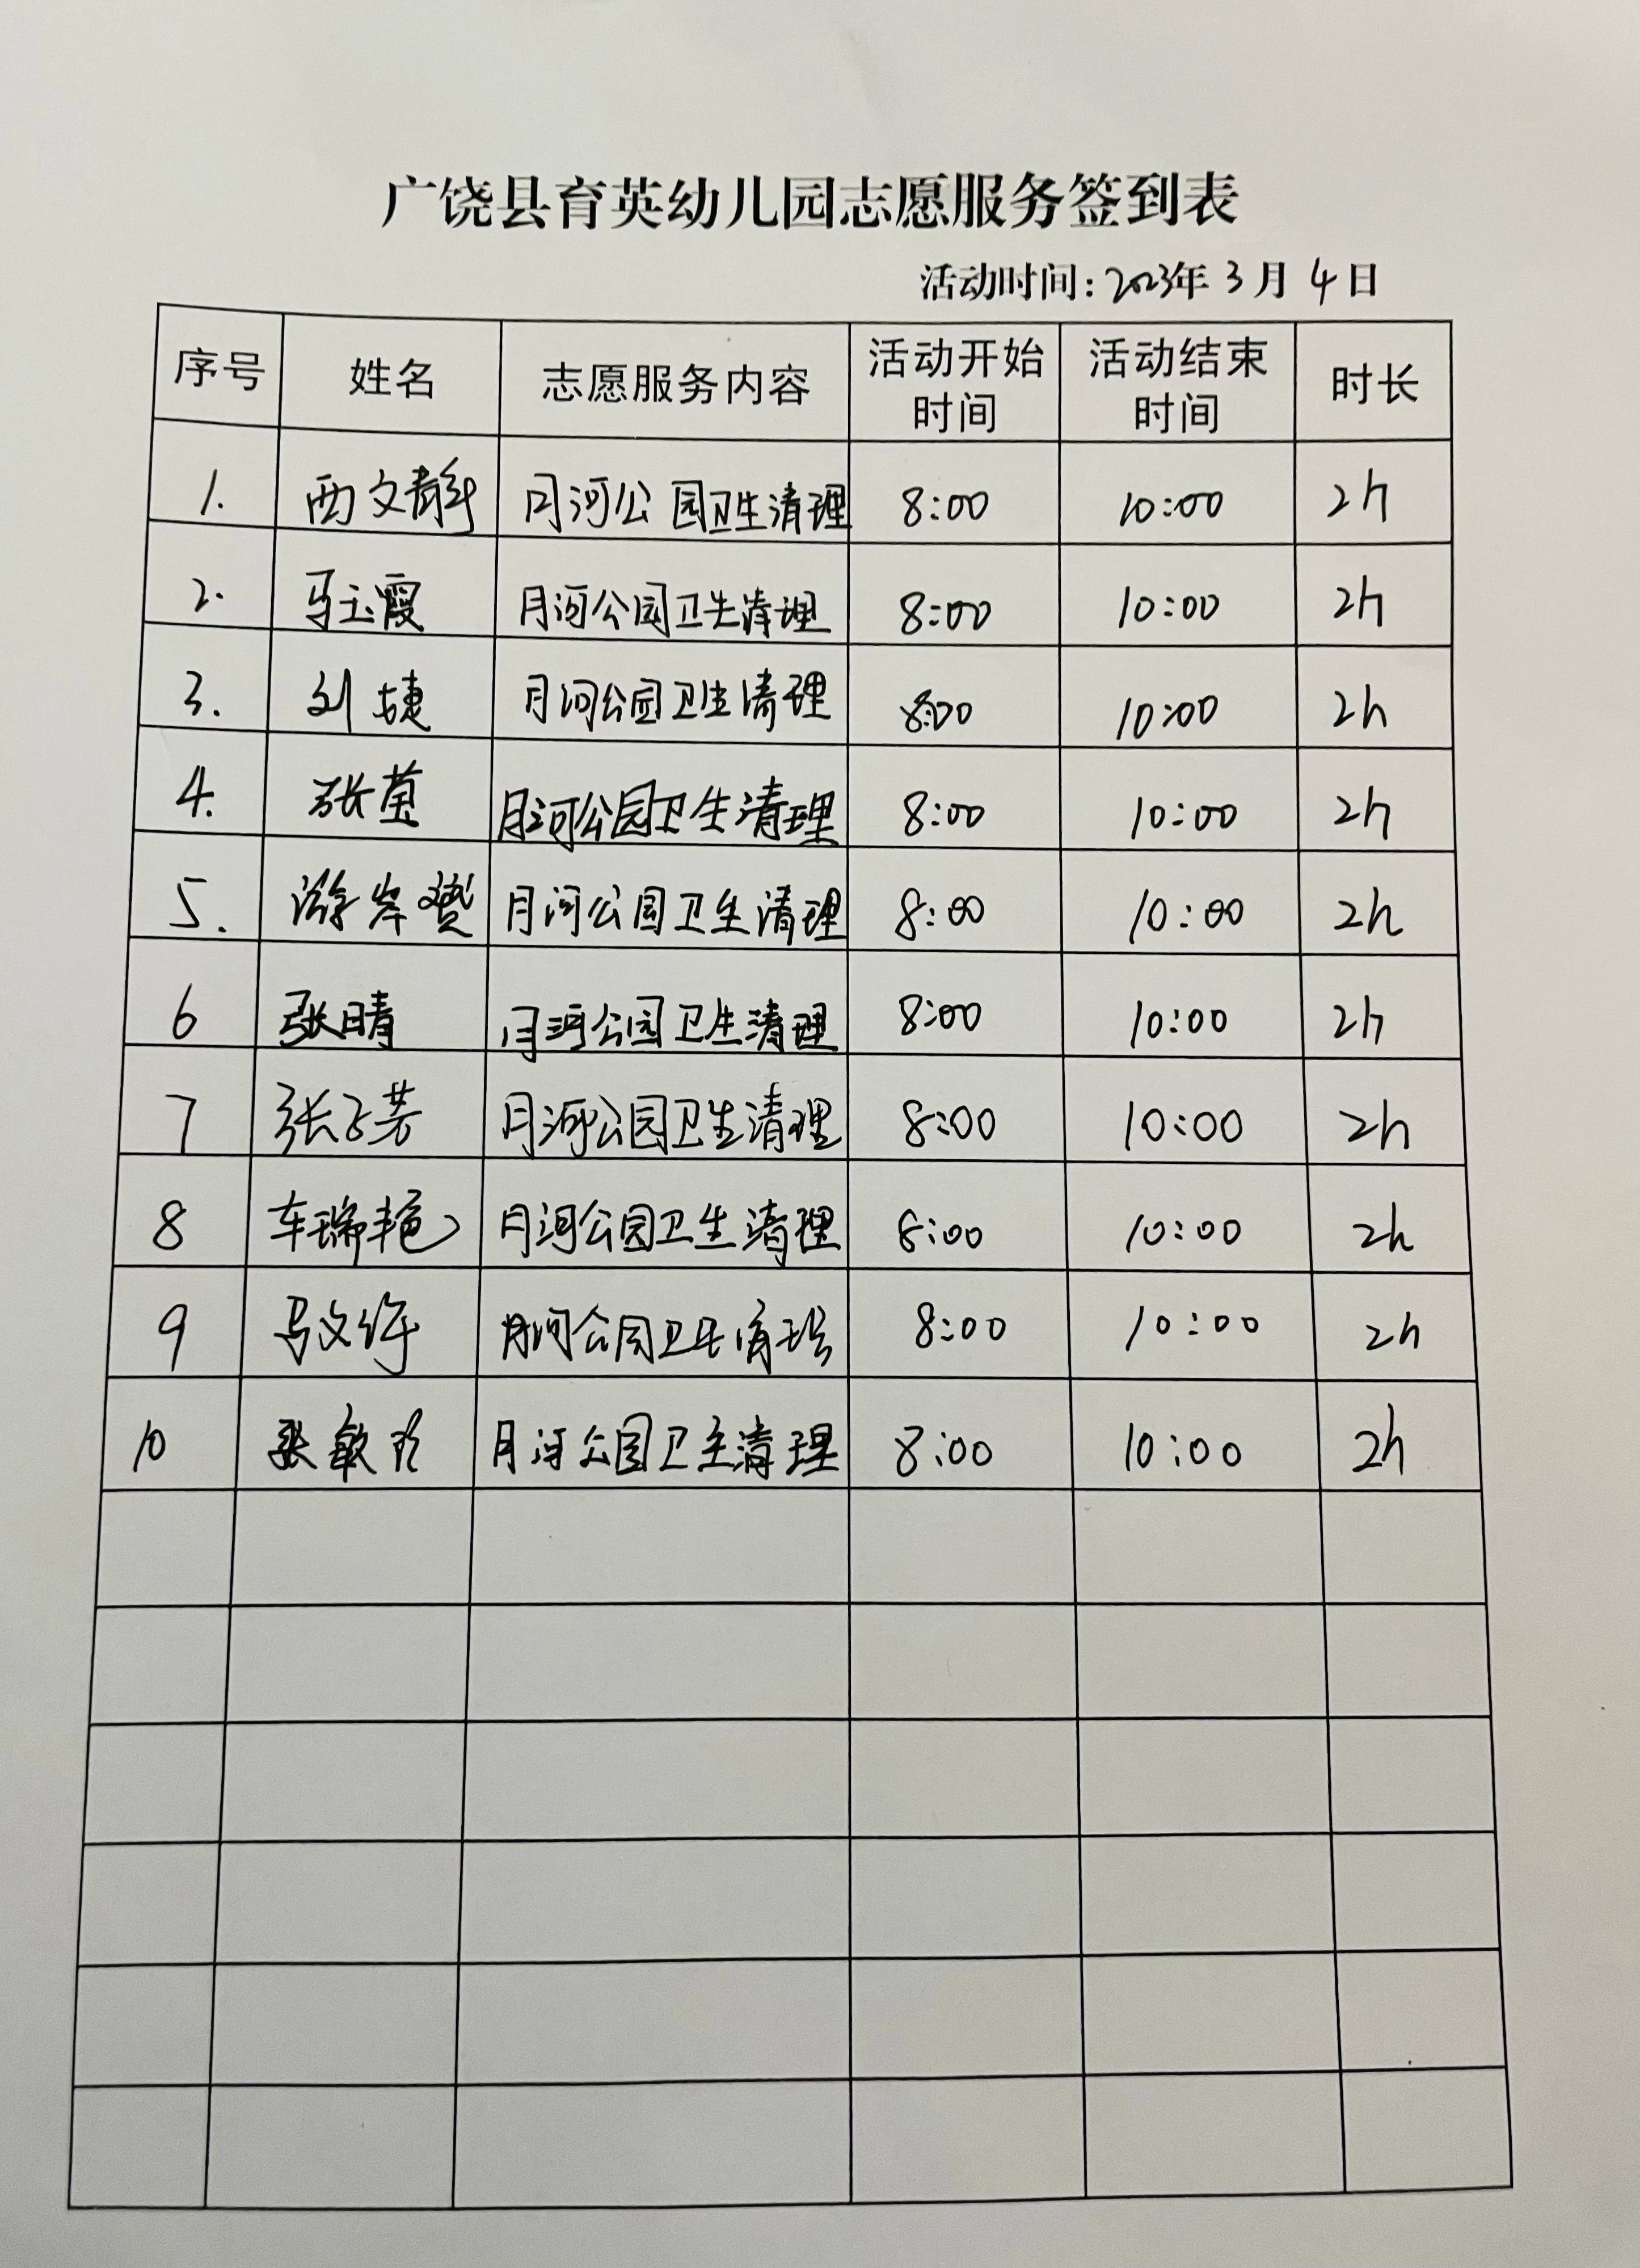 广饶县育英幼儿园志愿服务签到表
活动时间:2023年3月4日
序号 姓名 志愿服务内容 活动开始时间 活动结束时间 时长
1. 西文静 月河公园卫生清理 8:00 10:00 2h
2. 马玉霞 月河公园卫生清理 8:00 10:00 2h
3. 刘婕 月河公园卫生清理 8:00 10:00 2h
4. 张莹 月河公园卫生清理 8:00 10:00 2h
5. 月河公园卫生清理 8:00 10:00 2h
6 张晴 月河公园卫生清理 8:00 10:00 2h
7 张子芳 月河公园卫生清理 8:00 10:00 2h
8 车瑞艳 月河公园卫生清理 8:00 10:00 2h
9 马文 月河公园卫生清理 8:00 10:00 2h
10 张敏 月河公园卫生清理 8:00 10:00 2h